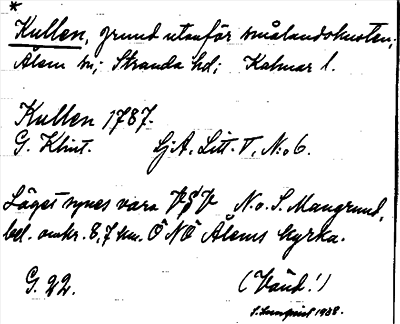 *
Kullen, grund utanför smålandskusten;
Ålem sn; Stranda hd; Kalmar l.
Kullen 1787.
G. Klint. Sj.A. Litt. T, N:o 6.
Läget synes vara N.o. S. Mangrund,
bel. omkr. 8,7 km. ÖNÖ Ålems kyrka.
G. 22. (Vänd!)
1928.